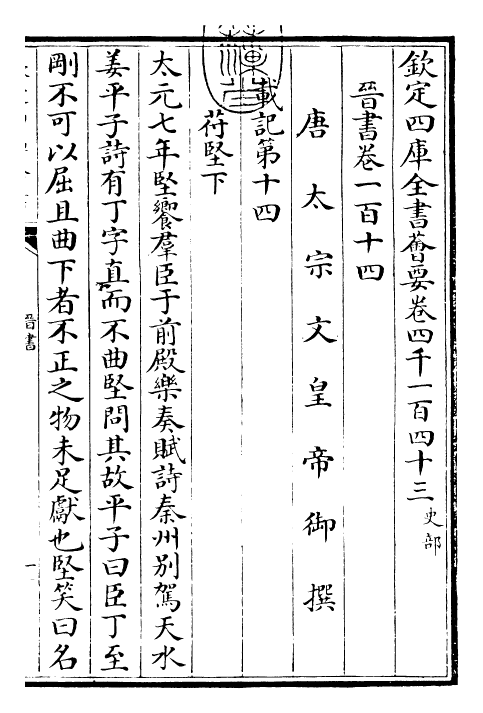 欽定四庫全書薈要卷四千一百四十三 史部
晉書卷一百十四
唐太宗文皇帝御撰
載記第十四
苻堅下
太元七年堅饗羣臣于前殿樂奏賦詩秦州別駕天水
姜平子詩有丁字直而不曲堅問其故平子曰臣丁至
剛不可以屈且曲下者不正之物未足獻也堅笑曰名
晉書
一